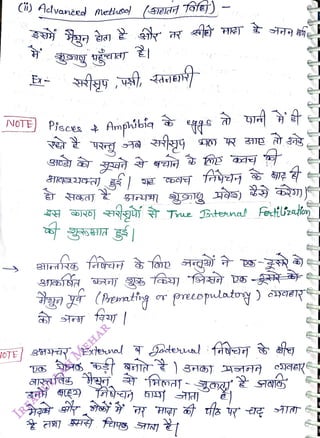 (ii) Advanced method (अद्यतन विधि) -
इसमें मैथुन होता है और नर सीधे मादा के जनन मार्ग
में शुक्राणु पहुँचाता है।
Ex- सरीसृप, पक्षी, स्तनधारी
NOTE Pisces & Amphibia के eggs तो पानी में ही
रहते है परन्तु जब सरीसृप थल पर आए तो उनके
अण्डों को सूखने से बचाने के लिए कवच की
आवश्यकता हुई। यह कवच निषेचन के बाद ही
हो सकता है अन्यथा शुक्राणु प्रवेश कैसे करेगा।
इस कारण सरीसृपों से True Internal Fertilization
की शुरूआत हुई।
→ आन्तरिक निषेचन के लिए जन्तुओं ने एक-दूसरे को
आकर्षित करना शुरू किया जिसने एक-दूसरे को
मैथुन पूर्व (Premating or precopulatory) व्यवहार
को जन्म दिया।
NOTE उभयचर External व Internal निषेचन के बीच
एक योजक कड़ी बनाते है। उनका प्रजनन व्यवहार
वास्तविक मैथुन से मिलता-जुलता है जबकि
उनमें बाह्य निषेचन पाया जाता है।
मेंढक और टोडों में नर मादा की पीठ पर चढ़ जाता
है तथा उससे चिपक जाता है।